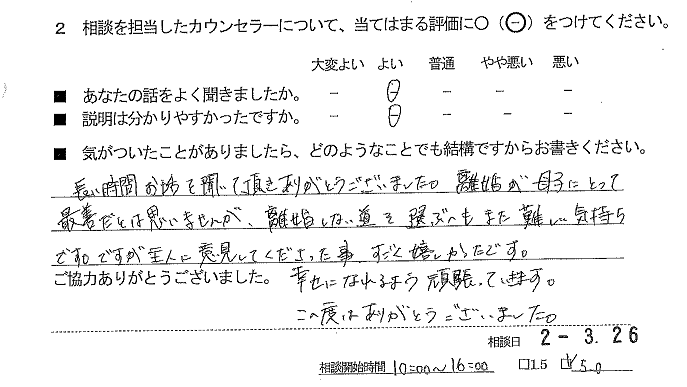 2 相談を担当したカウンセラーについて、当てはまる評価に○（⊖）をつけてください。
大変よい よい 普通 やや悪い 悪い
■ あなたの話をよく聞きましたか。 － ⊖ － － －
■ 説明は分かりやすかったですか。 － ⊖ － － －
■ 気がついたことがありましたら、どのようなことでも結構ですからお書きください。
長い時間お話を聞いて頂きありがとうございました。離婚が母子にとって
最善だとは思いませんが、離婚しない道を選ぶのもまた難しい気持ち
です。ですが主人に意見してくださった事 すごく嬉しかったです。
ご協力ありがとうございました。 幸せになれるよう頑張っていきます。
この度はありがとうございました。
相談日 2－3.26
相談開始時間 10:00〜16:00 □1.5 ☑5.0